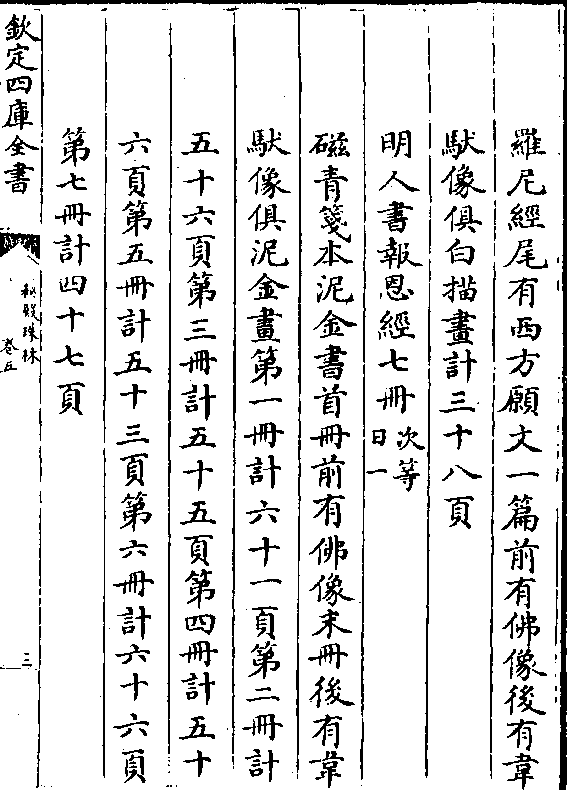 羅尼經尾有西方願文一篇前有佛像後有韋
馱像俱白描畫計三十八頁
明人書報恩經七冊次等日一
磁青箋本泥金書首冊前有佛像末冊後有韋
馱像俱泥金畫第一冊計六十一頁第二冊計
五十六頁第三冊計五十五頁第四冊計五十
六頁第五冊計五十三頁第六冊計六十六頁
第七冊計四十七頁
欽定四庫全書
秘殿珠林
卷五
三